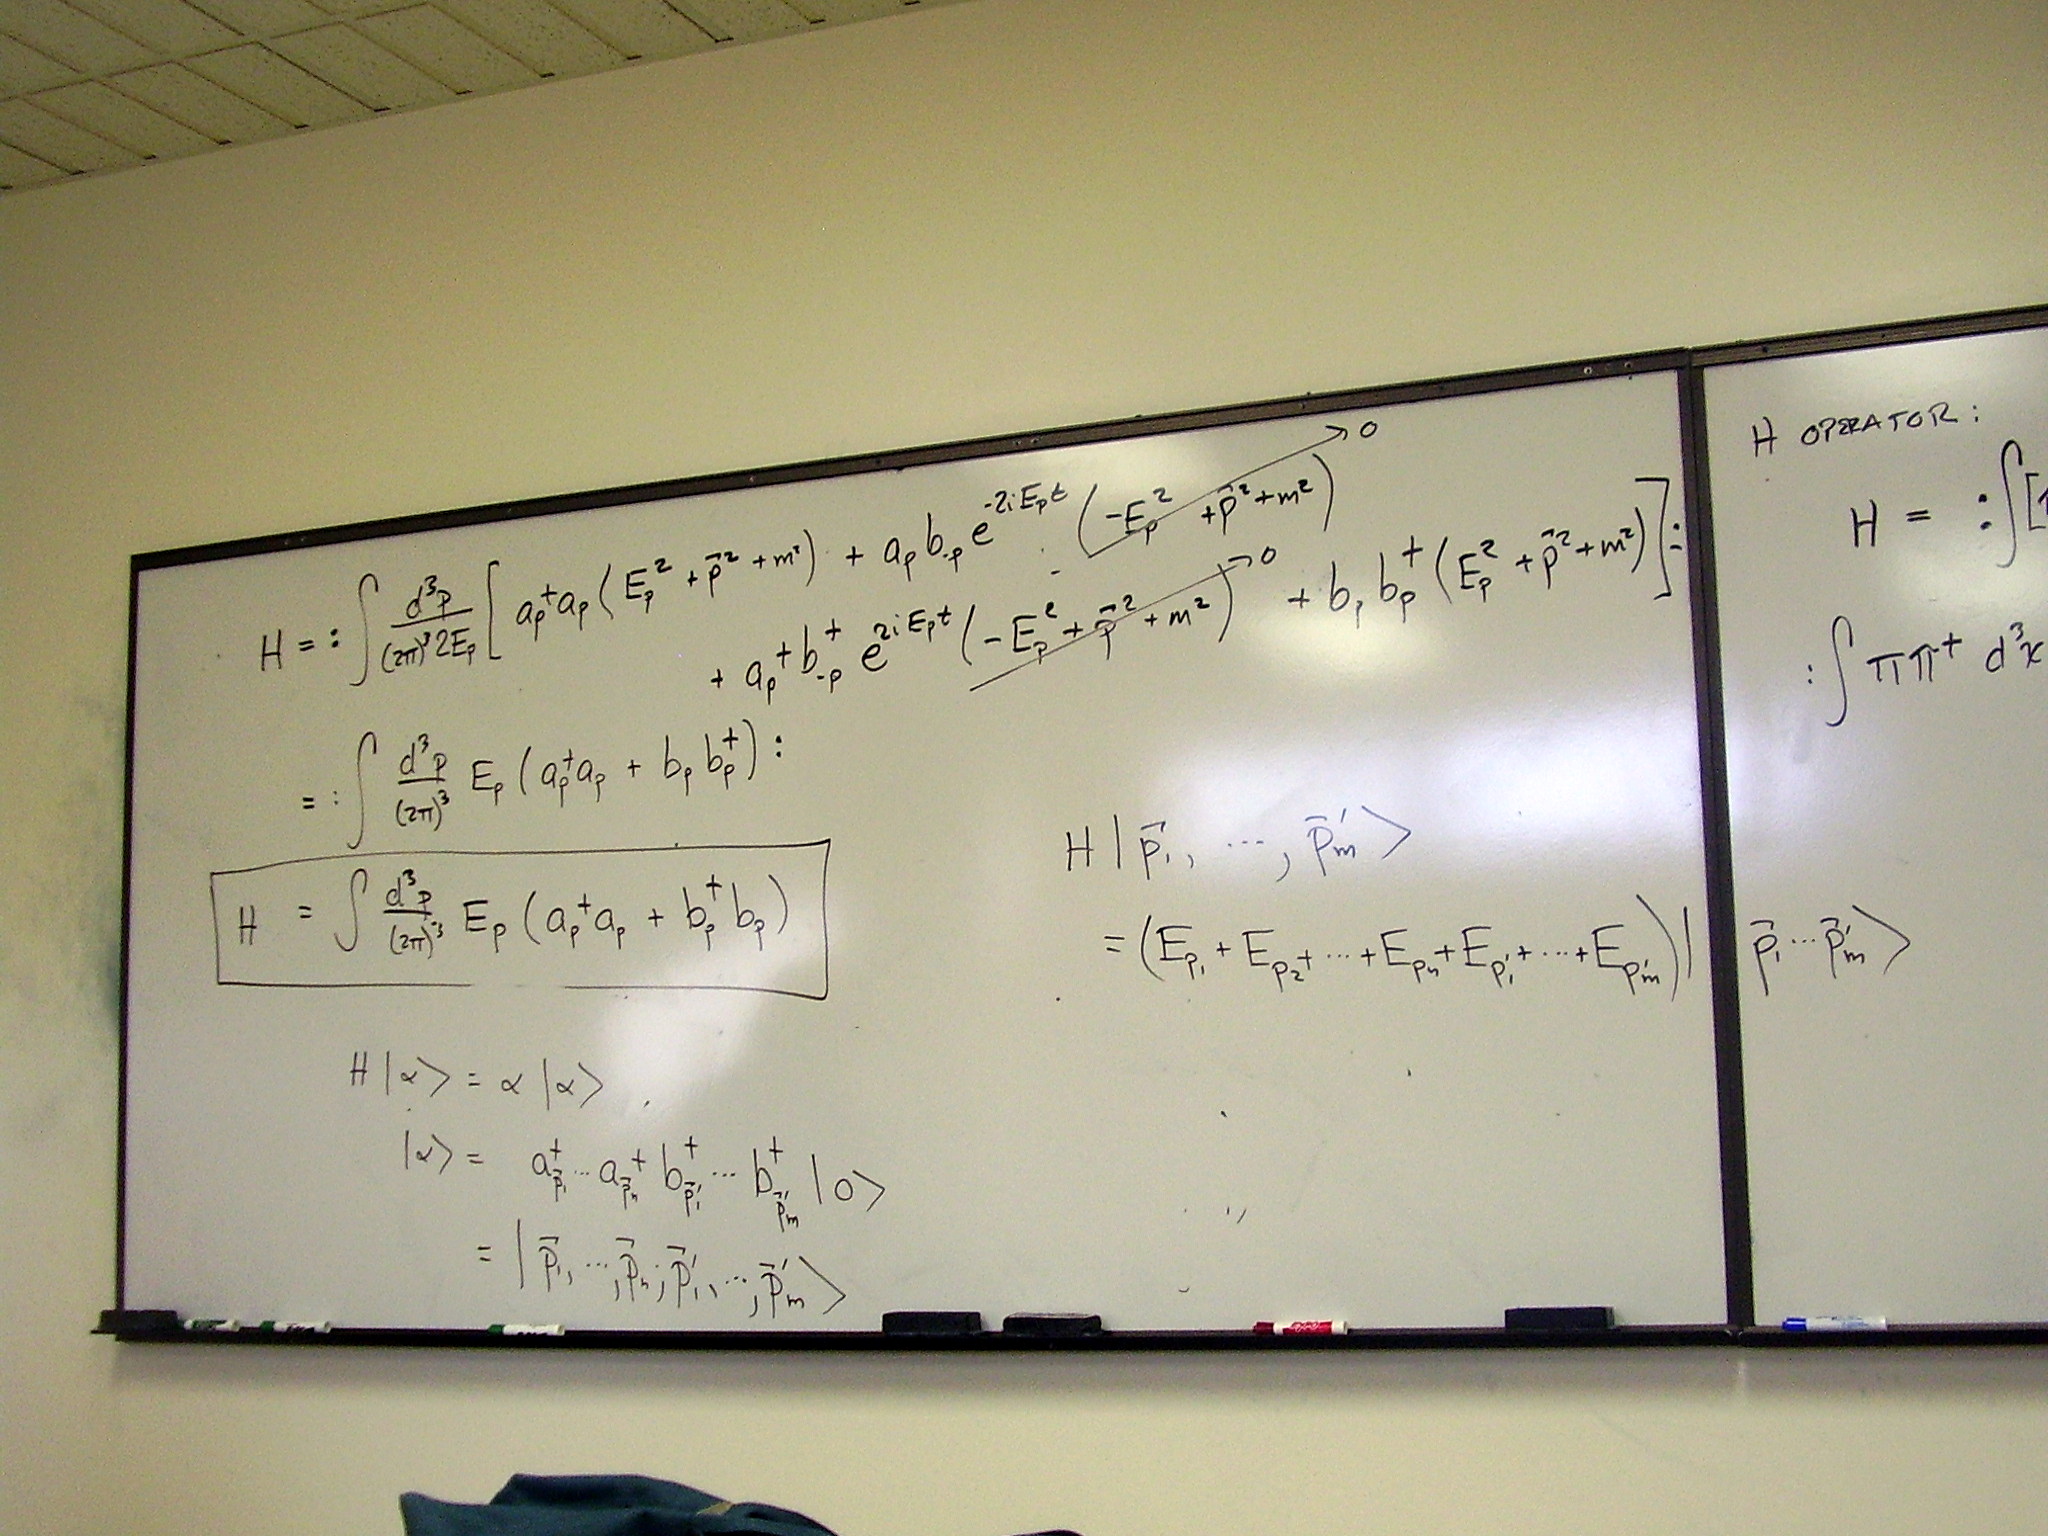 H = : ∫ d³p/((2π)³2E_p) [ a_p†a_p (E_p² + p⃗² + m²) + a_p b_-p e^(-2iE_p t) (-E_p² + p⃗² + m²) → 0
+ a_p† b_-p† e^(2iE_p t) (-E_p² + p⃗² + m²) → 0 + b_p b_p† (E_p² + p⃗² + m²) ] :
= : ∫ d³p/(2π)³ E_p (a_p†a_p + b_p b_p†) :
H = ∫ d³p/(2π)³ E_p (a_p†a_p + b_p†b_p)
H |α⟩ = α |α⟩
|α⟩ = a†_p⃗₁ ... a†_p⃗ₙ b†_p⃗₁' ... b†_p⃗ₘ' |0⟩
= | p⃗₁, ..., p⃗ₙ ; p⃗₁', ..., p⃗ₘ' ⟩
H | p⃗₁, ..., p⃗ₘ' ⟩
= (E_p₁ + E_p₂ + ... + E_pₙ + E_p₁' + ... + E_pₘ') | p⃗₁ ... p⃗ₘ' ⟩
H OPERATOR:
H = : ∫ [
: ∫ π π† d³x